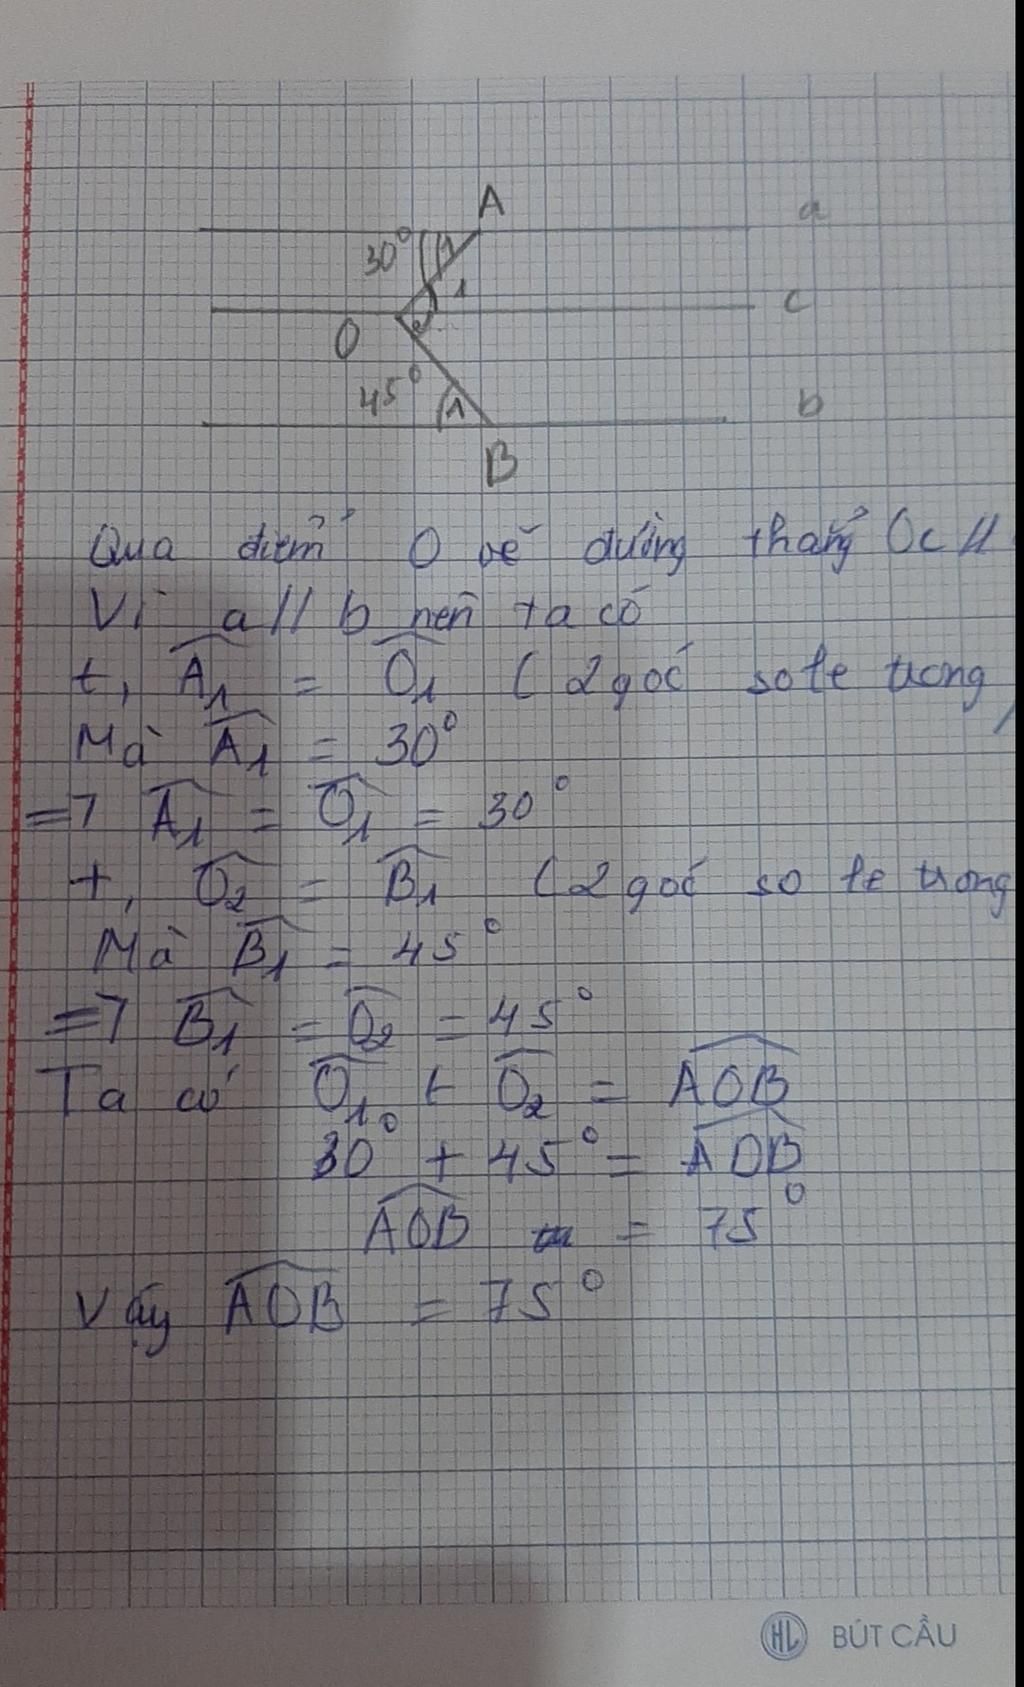 A
a
30°
1
1
c
O
2
45°
1
b
B
Qua điểm O vẽ đường thẳng Oc //
Vì a // b nên ta có
+, Â₁ = Ô₁ ( 2 góc so le trong
Mà Â₁ = 30°
=> Â₁ = Ô₁ = 30°
+, Ô₂ = B̂₁ ( 2 góc so le trong
Mà B̂₁ = 45°
=> B̂₁ = Ô₂ = 45°
Ta có Ô₁ + Ô₂ = AÔB
30° + 45° = AÔB
AÔB = 75°
Vậy AÔB = 75°
HL BÚT CẦU